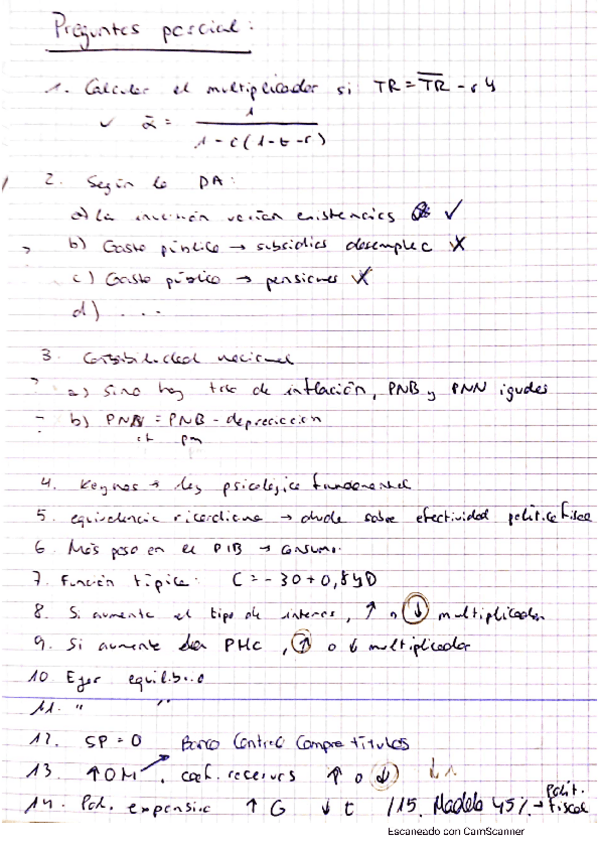 Preguntas parcial:
1. Calcular el multiplicador si TR = TR - r y
✓ α = 1 / 1 - c (1 - t - r)
2. Según la DA:
a) La inversión varían existencias ✓
b) Gasto público → subsidios desempleo X
c) Gasto público → pensiones X
d) ...
3. Contabilidad nacional
? a) Si no hay tasa de inflación, PNB y PNN iguales
- b) PNN = PNB - depreciación
cf pm
4. Keynes → ley psicológica fundamental
5. equivalencia ricardiana → duda sobre efectividad política fiscal
6. Más peso en el PIB → consumo.
7. Función típica: C = -30 + 0,8 yD
8. Si aumenta el tipo de interés, ↑ o ↓ multiplicador
9. Si aumenta la PMc, ↑ o ↓ multiplicador
10 Ejer equilibrio
11. " "
12. SP = 0 Banco Central Compra títulos
13. ↑OM, coef. reservas ↑ o ↓
14. Pol. expansiva ↑ G ↓ t /15. Modelo 45% → Polít. fiscal
Escaneado con CamScanner